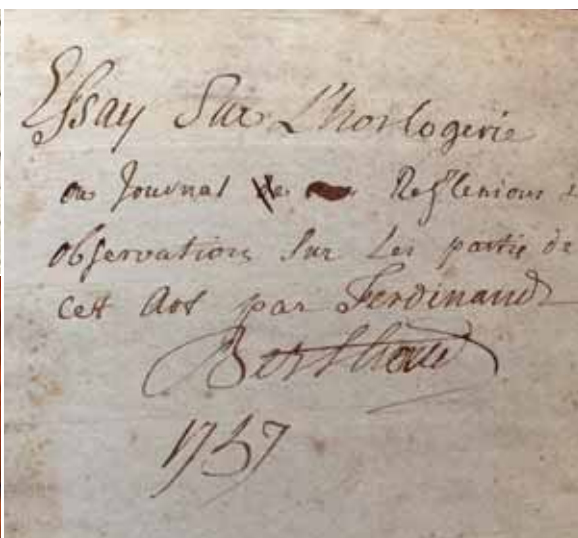 Essay Sur L'horlogerie
ou Journal de Reflexions &
observations Sur Les partie de
cett Art par Ferdinand
Berthoud
1757